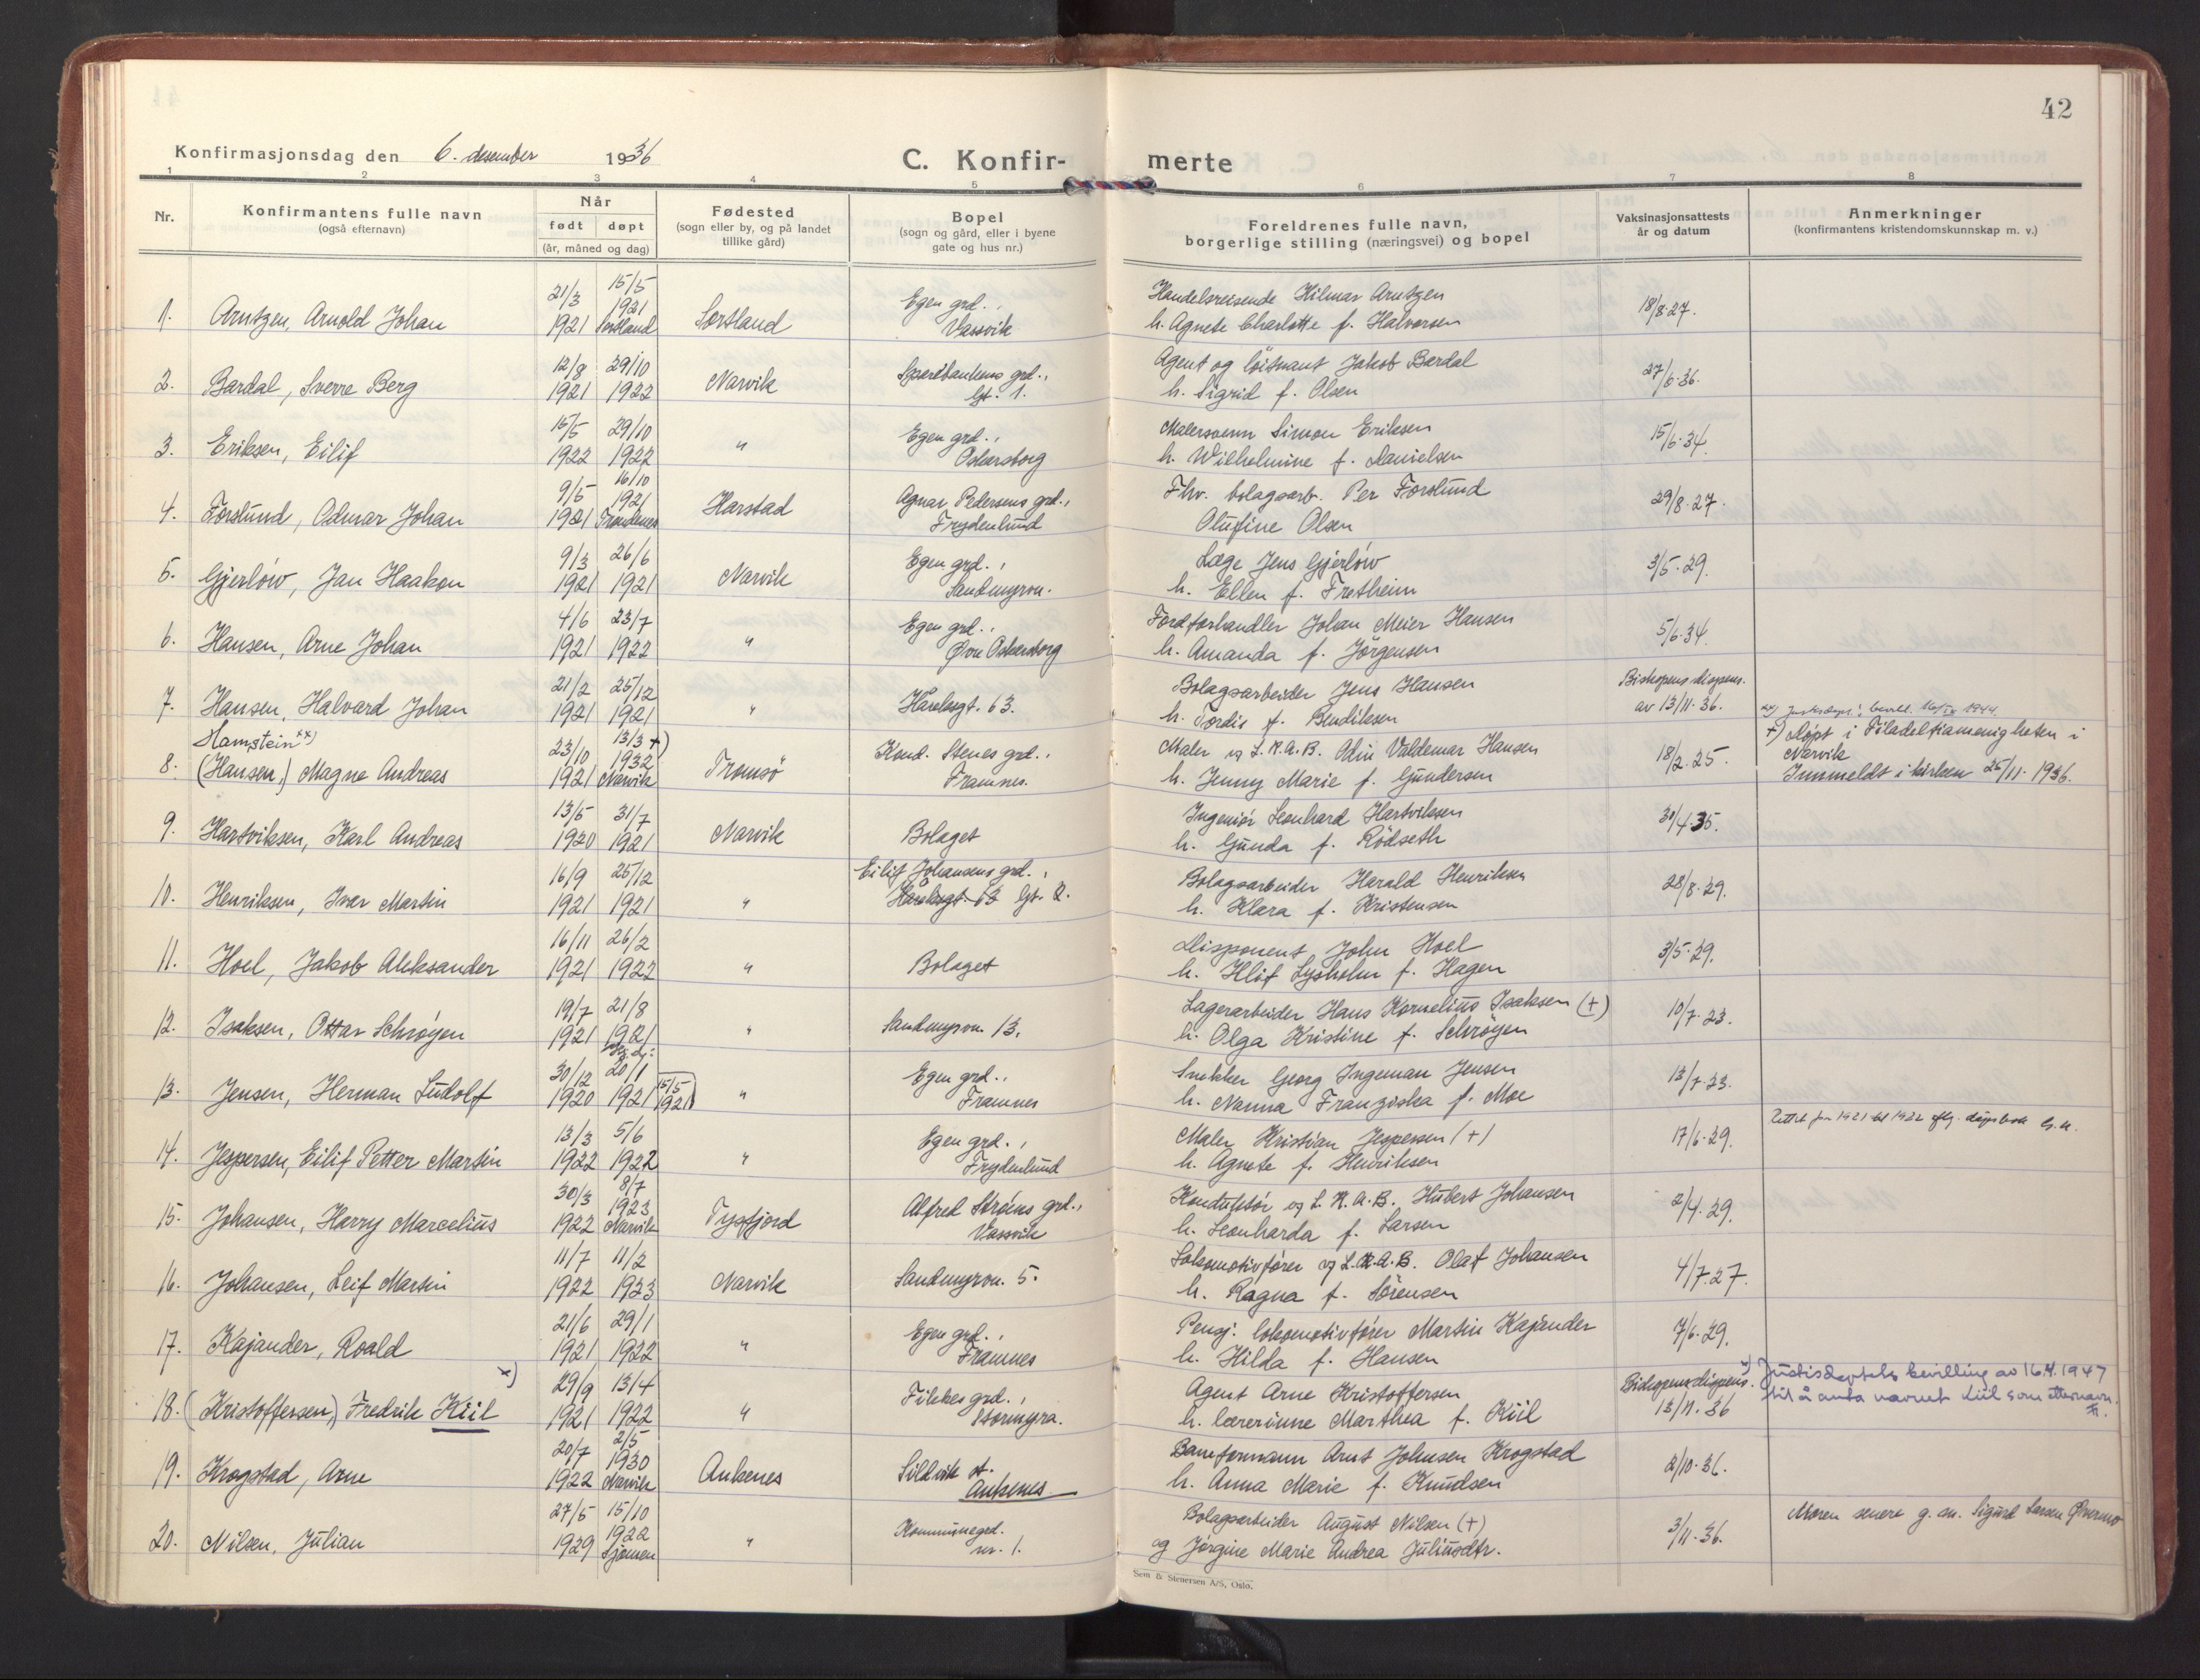 42
Konfirmasjonsdag den 6. desember 1936
C. Konfir- merte
1 2 3 4 5 6 7 8
Nr.
Konfirmantens fulle navn
(også efternavn)
Når
født døpt
(år, måned og dag)
Fødested
(sogn eller by, og på landet
tillike gård)
Bopel
(sogn og gård, eller i byene
gate og hus nr.)
Foreldrenes fulle navn,
borgerlige stilling (næringsvei) og bopel
Vaksinasjonsattests
år og datum
Anmerkninger
(konfirmantens kristendomskunnskap m. v.)
21/3 15/5 Egen grd., Handelsreisende Hilmar Arntzen
1. Arntzen, Arnold Johan 1921 1921 Sortland Sortland Vassvik h. Agnete Charlotte f. Halvorsen 18/8-27.
12/8 29/10 Sparebankens grd., Agent og löitnant Jakob Bardal
2. Bardal, Sverre Berg 1921 1922 Narvik gt. 1. h. Sigrid f. Olsen 27/6-36.
15/5 29/10 Egen grd., Malersvenn Simon Eriksen
3. Eriksen, Eilif 1922 1922 " Oskarsborg h. Wilhelmine f. Danielsen 15/6-34.
9/5 16/10 Agnar Pedersens grd., Fhv. bolagsarb. Per Forslund
4. Forslund, Odmar Johan 1921 1921 Trondenes Harstad Frydenlund Olufine Olsen 29/8-27.
9/3 26/6 Egen grd., Læge Jens Gjerlöw
5. Gjerlöw, Jan Haakon 1921 1921 Narvik Sandmyrvn. h. Ellen f. Fretheim 3/5-29.
4/6 23/7 Egen grd., Fordforhandler Johan Meier Hansen
6. Hansen, Arne Johan 1921 1922 " Øvre Oskarsborg h. Amanda f. Jörgensen 5/6-34.
21/2 25/12 Bolagsarbeider Jens Hansen Bishopens dispens.
7. Hansen, Halvard Johan 1921 1921 " Håreksgt. 63. h. Tordis f. Bendiksen av 13/11-36.
Hamstein xx) 23/10 13/3 +) Kond. Stenes grd., Maler v/ L.K.A.B. Odin Valdemar Hansen
8. (Hansen,) Magne Andreas 1921 1932 Narvik Tromsö Framnes. h. Jenny Marie f. Gundersen 18/2-25.
xx) Justisdept.s bevill. 1944.
+) Döpt i Filadelfiamenigheten i
Narvik
Innmeldt i kirken 25/11-1936.
13/5 31/7 Ingeniör Leonhard Hartviksen
9. Hartviksen, Karl Andreas 1920 1921 Narvik Bolaget h. Gunda f. Rödseth 30/4-35.
16/9 25/12 Eilif Johansens grd., Bolagsarbeider Harald Henriksen
10. Henriksen, Ivar Martin 1921 1921 " Håreksgt. 63 gt. 2. h. Klara f. Kristensen 28/8-29.
16/11 26/2 Disponent John Hoel
11. Hoel, Jakob Aleksander 1921 1922 " Bolaget h. Hlif Lysholm f. Hagen 3/5-29.
19/7 21/8 Lagerarbeider Hans Kornelius Isaksen (+)
12. Isaksen, Ottar Schröyen 1921 1921 " Sandmyrvn. 13. h. Olga Kristine f. Schröyen 10/7-23.
30/12 20/1 Egen grd., Snekker Georg Ingeman Jensen
13. Jensen, Herman Ludolf 1920 1921 15/5 1921 " Framnes h. Nanna Franziska f. Moe 13/7-23.
13/3 5/6 Egen grd., Maler Kristian Jespersen (+)
14. Jespersen, Eilif Petter Martin 1922 1922 " Frydenlund h. Agnete f. Henriksen 17/6-29.
Rettet fra 1921 til 1922 eflg. dåpsbok
30/3 8/7 Alfred Ströms grd., Konduktör v/ L.K.A.B. Hubert Johansen
15. Johansen, Harry Marcelius 1922 1923 Narvik Tysfjord Vassvik h. Leonharda f. Larsen 2/4-29.
11/7 11/2 Lokomotivfører v/ L.K.A.B. Olaf Johansen
16. Johansen, Leif Martin 1922 1923 Narvik Sandmyrvn. 5. h. Ragna f. Sörensen 4/7-27.
21/6 29/1 Egen grd., Pensj. lokomotivfører Martin Kajander
17. Kajander, Roald 1921 1922 " Framnes h. Hilda f. Hansen 7/6-29.
x) 29/9 13/4 Filekes grd., Agent Arne Kristoffersen Bishopens dispens.
18. (Kristoffersen,) Fredrik Kiil 1921 1922 " Stormyra. h. lærerinne Marthea f. Kiil 13/11-36
x) Justisdeptets bevilling av 16.4.1947
til å anta navnet Kiil som etternavn.
20/7 2/5 Baneformann Arnt Johnsen Krogstad
19. Krogstad, Arne 1922 1930 Narvik Ankenes Sildvik st. Ankenes. h. Anna Marie f. Knudsen 2/10-36.
27/5 15/10 Kommunegrd. Bolagsarbeider August Nilsen (+)
20. Nilsen, Julian 1929 1922 Sjömen " nr. 1. og Jörgine Marie Andrea Juliusdtr. 3/11-36.
Moren senere g. m. Sigurd Larsen
Sem & Stenersen A/S, Oslo.